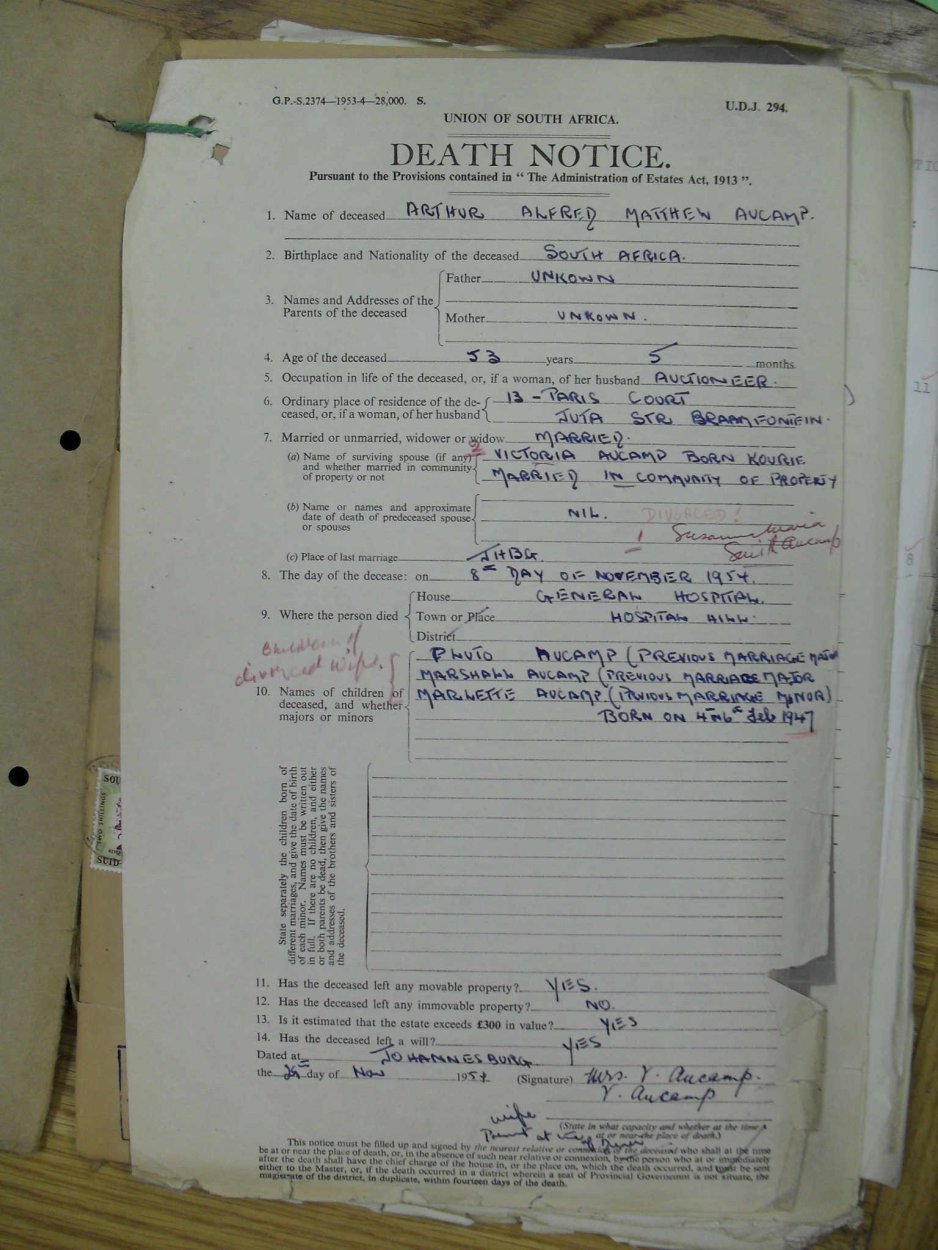 G.P.-S.2374—1953-4—28,000. S.
U.D.J. 294.
UNION OF SOUTH AFRICA.
DEATH NOTICE.
Pursuant to the Provisions contained in " The Administration of Estates Act, 1913 ".
1. Name of deceased ARTHUR ALFRED MATTHEW AUCAMP.
2. Birthplace and Nationality of the deceased SOUTH AFRICA.
3. Names and Addresses of the Parents of the deceased
Father UNKOWN
Mother UNKOWN.
4. Age of the deceased 53 years 5 months.
5. Occupation in life of the deceased, or, if a woman, of her husband AUCTIONEER.
6. Ordinary place of residence of the de- 13 - PARIS COURT
ceased, or, if a woman, of her husband JUTA STR BRAAMFONTEIN.
7. Married or unmarried, widower or widow MARRIED.
(a) Name of surviving spouse (if any) VICTORIA AUCAMP BORN KOURIE
and whether married in community MARRIED IN COMMUNITY OF PROPERTY
of property or not
(b) Name or names and approximate
date of death of predeceased spouse NIL. DIVORCED!
or spouses Susanna Maria
Smith Aucamp
(c) Place of last marriage JHBG.
8. The day of the decease: on 8th DAY OF NOVEMBER 1954.
9. Where the person died
House GENERAL HOSPITAL.
Town or Place HOSPITAL HILL.
District
Children of
divorced wife
10. Names of children of
deceased, and whether
majors or minors
PLUTO AUCAMP (PREVIOUS MARRIAGE MAJOR
MARSHALL AUCAMP (PREVIOUS MARRIAGE MAJOR
MARLETTE AUCAMP (PREVIOUS MARRIAGE MINOR)
BORN ON Feb 1947
State separately the children born of
different marriages, and give the date of birth
of each minor. Names must be written out
in full. If there are no children, and either
or both parents be dead, then give the names
and addresses of the brothers and sisters of
the deceased.
11. Has the deceased left any movable property? YES.
12. Has the deceased left any immovable property? NO.
13. Is it estimated that the estate exceeds £300 in value? YES
14. Has the deceased left a will? YES
Dated at JOHANNESBURG
the day of Nov 1954 (Signature) Mrs. V. Aucamp.
V. Aucamp
wife
(State in what capacity and whether at the time
at or near the place of death.)
This notice must be filled up and signed by the nearest relative or connexion of the deceased who shall at the time
be at or near the place of death, or, in the absence of such near relative or connexion, by the person who at or immediately
after the death shall have the chief charge of the house in, or the place on, which the death occurred, and must be sent
either to the Master, or, if the death occurred in a district wherein a seat of Provincial Government is not situate, the
magistrate of the district, in duplicate, within fourteen days of the death.
SOU
TWO SHILLINGS
SUID-
11
8